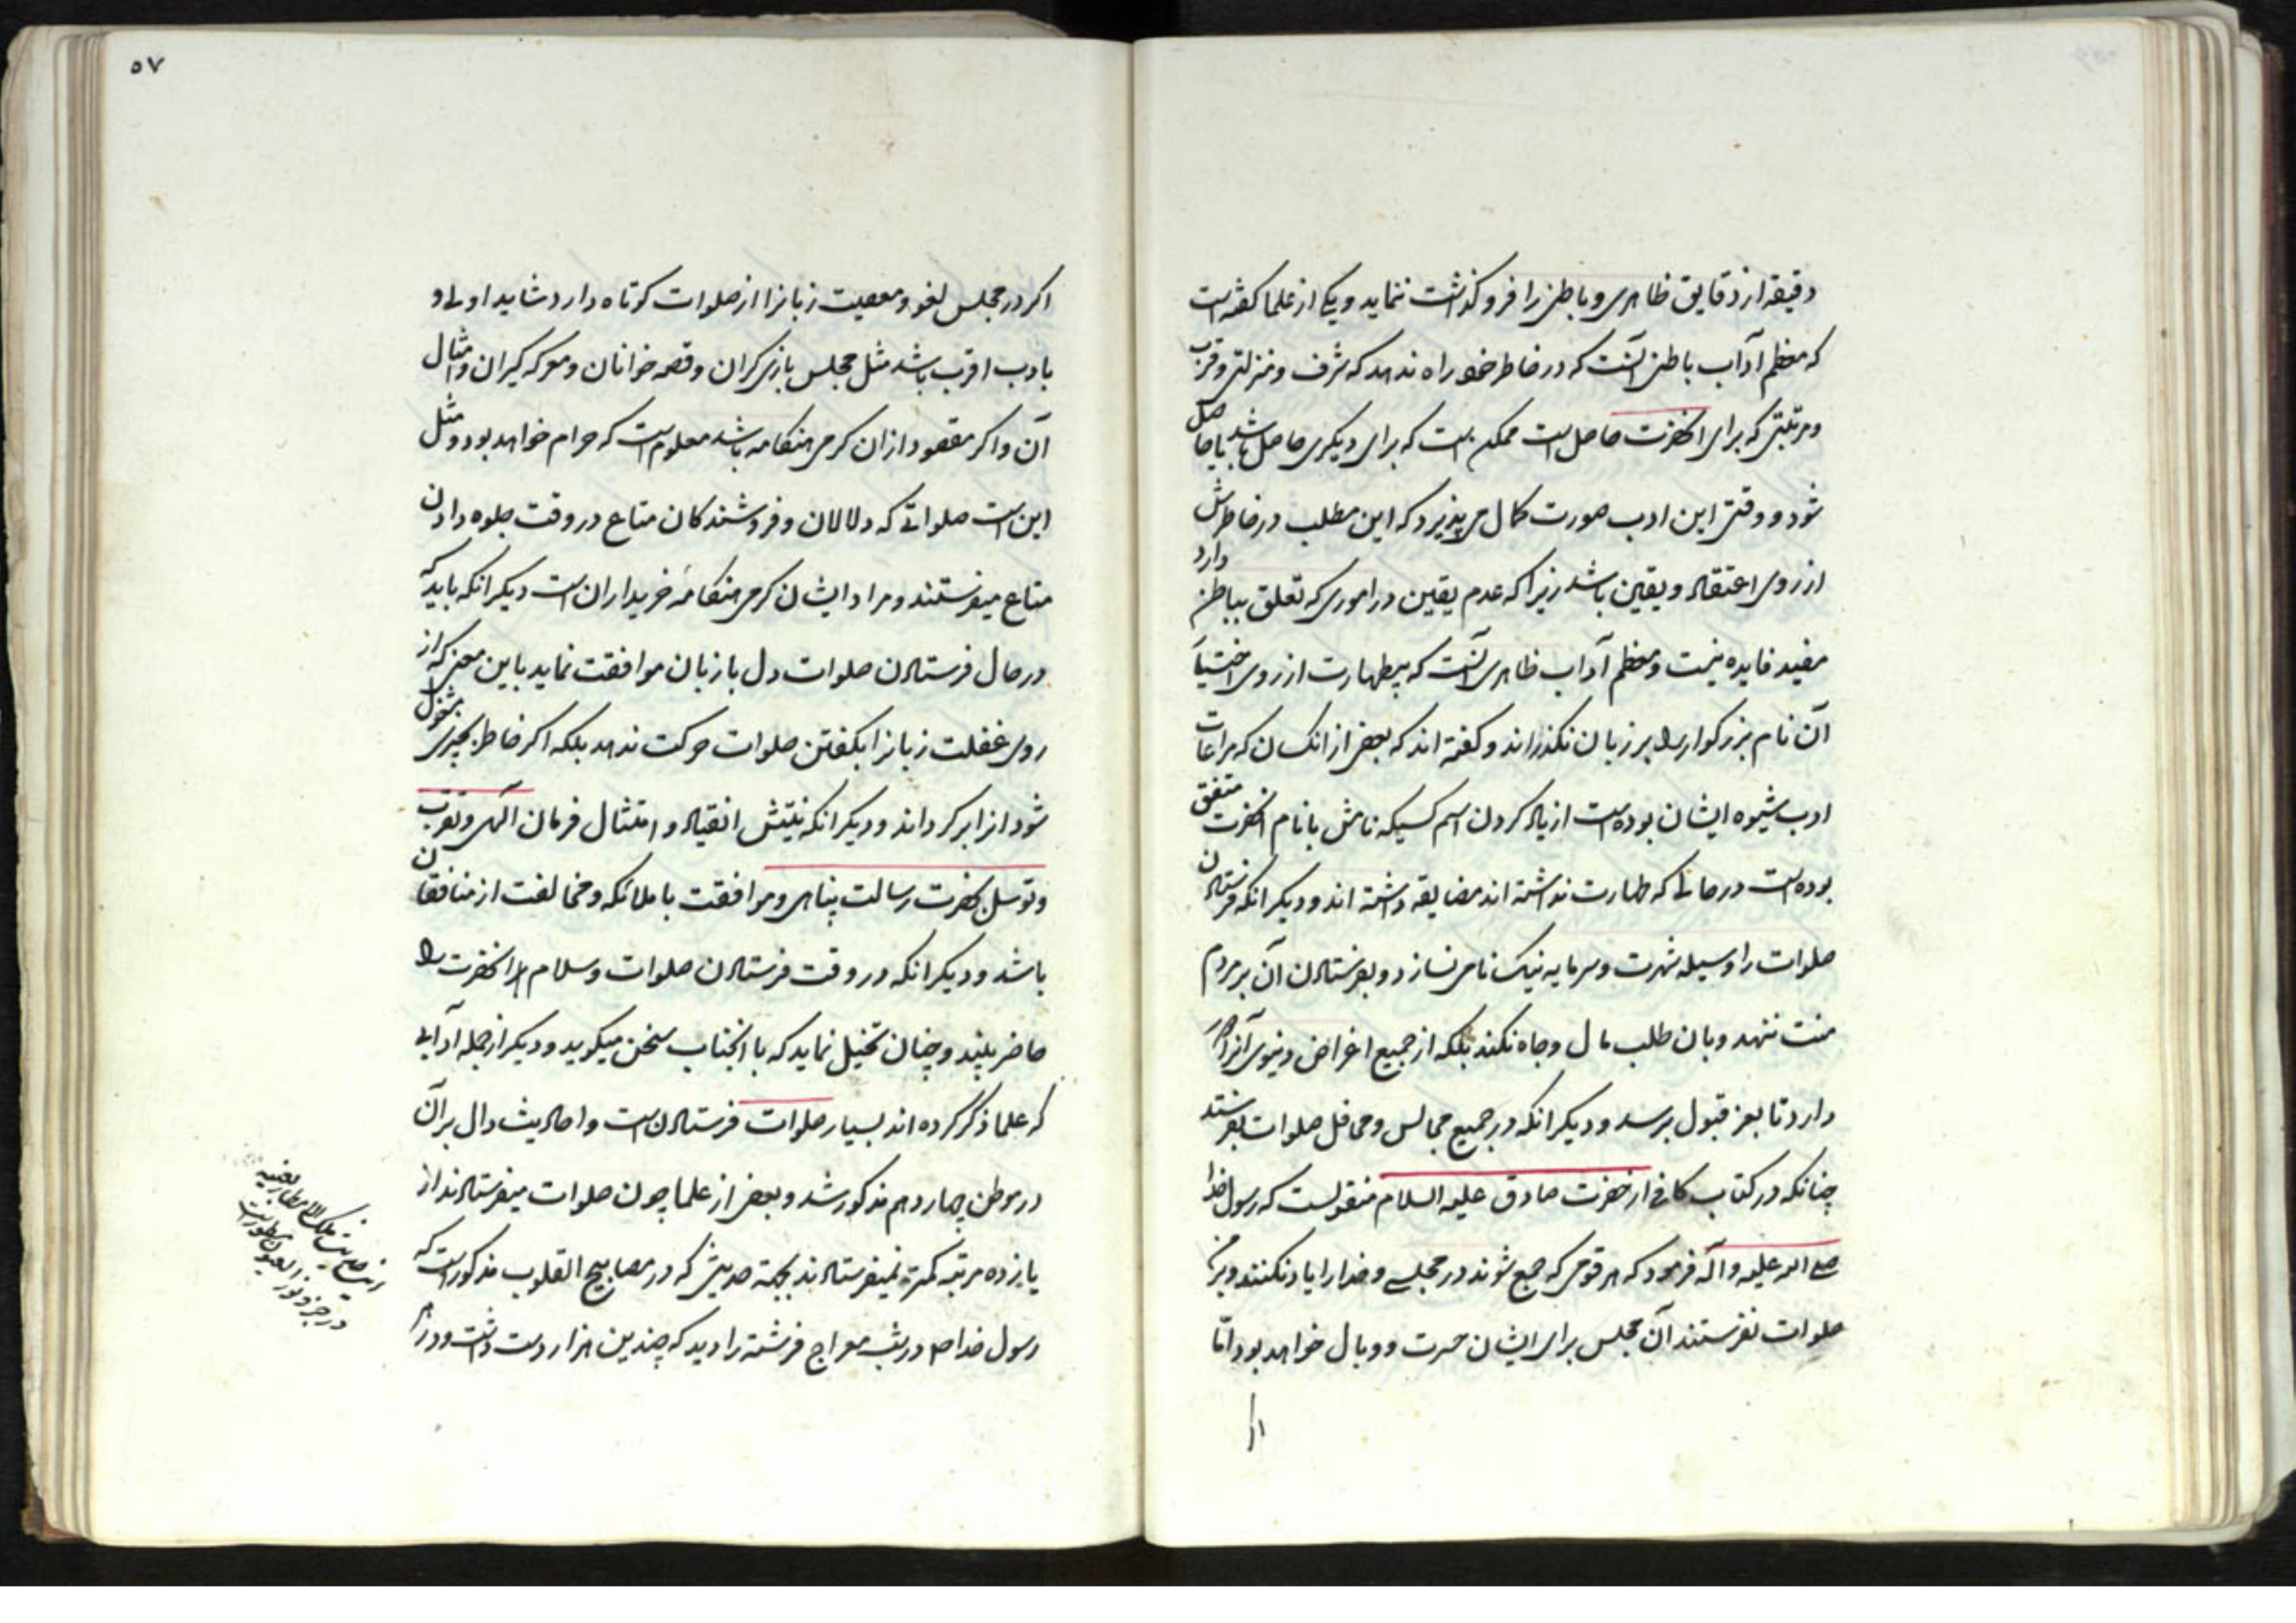 دقیقه از دقایق ظاهری و باطنی را فروگذاشت ننماید و یکی از علما گفته است
که معظم آداب باطنی آنست که در خاطر خود راه ندهد که شرف و منزلتی و قرب
و مرتبتی که برای انحضرت حاصل است ممکن است که برای دیگری حاصل باشد یا حاصل
شود و وقتی این ادب صورت کمال می پذیرد که این مطلب در خاطرش
از روی اعتقاد و یقین باشد زیرا که عدم یقین در اموری که تعلق بباطن دارد
مفید فایده نیست و معظم آداب ظاهری آنست که بیطهارت از روی اختیار
آن نام بزرگوار را بر زبان نگذراند و گفته اند که بعضی از انکسان که مراعات
ادب شیوه ایشان بوده است از یاد کردن اسم کسیکه نامش با نام انحضرت متفق
بوده است در حالی که طهارت نداشته اند مضایقه داشته اند و دیگر انکه فرستادن
صلوات را وسیله شهرت و سرمایه نیک نامی نسازد و بفرستادن آن بر مردم
منت ننهد و بان طلب مال و جاه نکند بلکه از جمیع اغراض دنیوی آنرا
دارد تا بعز قبول برسد و دیگر انکه در جمیع مجالس و محافل صلوات بفرستد
چنانکه در کتاب کافی از حضرت صادق علیه السلام منقولست که رسول خدا
صلی الله علیه و آله فرمود که هر قومی که جمع شوند در مجلسی و خدا را یاد نکنند و بر من
صلوات نفرستند آن مجلس برای ایشان حسرت و وبال خواهد بود اما
۵۷
اکر در مجلس لغو و معصیت زبانرا از صلوات کوتاه دارد شاید اولی و
بادب اقرب باشد مثل مجلس بازی کران و قصه خوانان و معرکه کیران و امثال
آن و اکر مقصود ازان کرمی هنکامه باشد معلوم است که حرام خواهد بود و مثل
این است صلواتی که دلالان و فروشندکان متاع در وقت جلوه دادن
متاع میفرستند و مراد ایشان کرمی هنکامهٔ خریداران است دیکر انکه باید که
در حال فرستادن صلوات دل با زبان موافقت نماید باین معنی که از
روی غفلت زبانرا بکفتن صلوات حرکت ندهد بلکه اکر خاطر بچیزی مشغول
شود انرا بر کرداند و دیکر انکه نیتش انقیاد و امتثال فرمان الهی و تقرب
و توسل بحضرت رسالت پناهی و موافقت با ملائکه و مخالفت از منافقان
باشد و دیکر انکه در وقت فرستادن صلوات و سلام انحضرت را
حاضر بیند و چنان تخیل نماید که با انجناب سخن میکوید و دیکر از جمله آدابی
که علما ذکر کرده اند بسیار صلوات فرستادن است و احادیث دال بر آن
در موطن چهاردهم مذکور شد و بعضی از علما چون صلوات میفرستادند از
یازده مرتبه کمتر نمیفرستادند بجهة حدیثی که در مصابیح القلوب مذکور است که
رسول خدا ص در شب معراج فرشته را دید که چندین هزار دست داشت و در هر